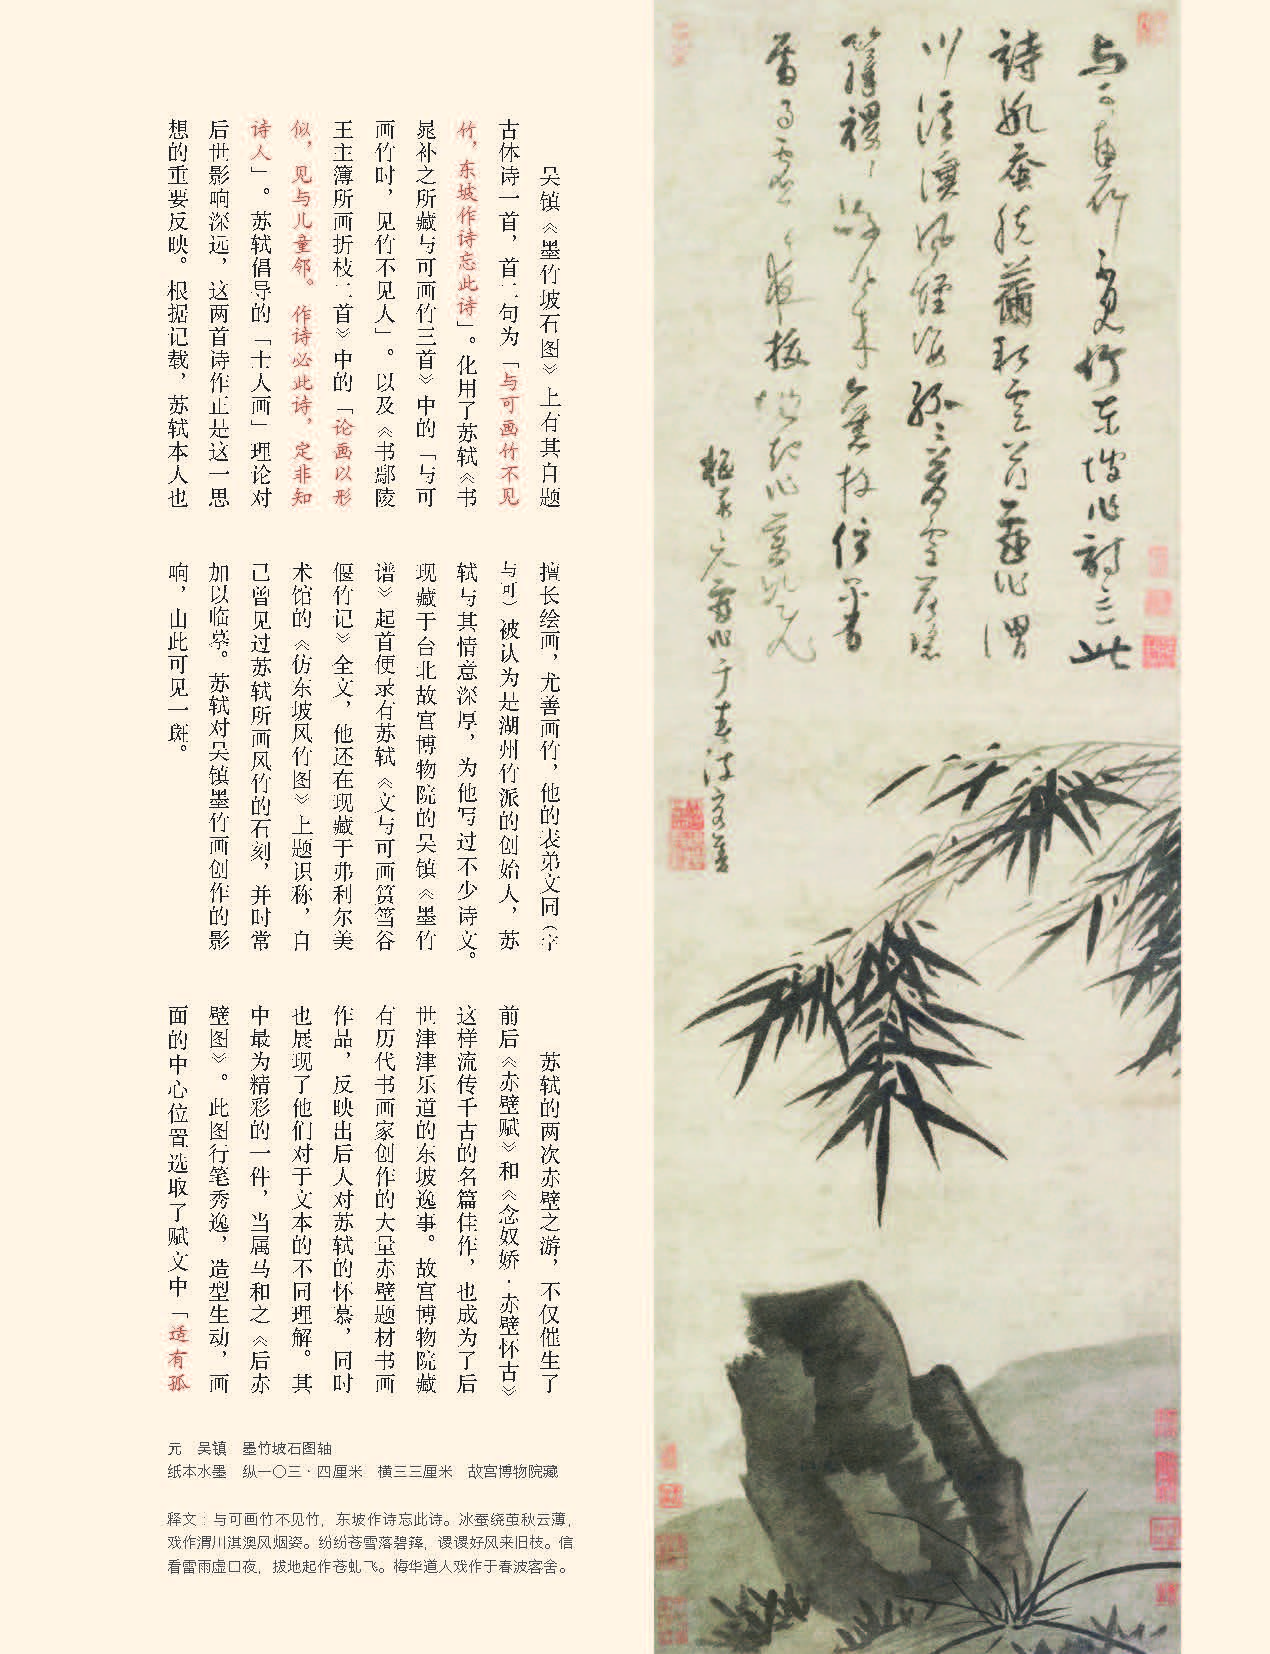 吴镇《墨竹坡石图》上有其自题
古体诗一首，首二句为「与可画竹不见
竹，东坡作诗忘此诗」。化用了苏轼《书
晁补之所藏与可画竹三首》中的「与可
画竹时，见竹不见人」。以及《书鄢陵
王主簿所画折枝二首》中的「论画以形
似，见与儿童邻。作诗必此诗，定非知
诗人」。苏轼倡导的「士人画」理论对
后世影响深远，这两首诗作正是这一思
想的重要反映。根据记载，苏轼本人也
擅长绘画，尤善画竹，他的表弟文同（字
与可）被认为是湖州竹派的创始人，苏
轼与其情意深厚，为他写过不少诗文。
现藏于台北故宫博物院的吴镇《墨竹
谱》起首便录有苏轼《文与可画筼筜谷
偃竹记》全文，他还在现藏于弗利尔美
术馆的《仿东坡风竹图》上题识称，自
己曾见过苏轼所画风竹的石刻，并时常
加以临摹。苏轼对吴镇墨竹画创作的影
响，由此可见一斑。
苏轼的两次赤壁之游，不仅催生了
前后《赤壁赋》和《念奴娇·赤壁怀古》
这样流传千古的名篇佳作，也成为了后
世津津乐道的东坡逸事。故宫博物院藏
有历代书画家创作的大量赤壁题材书画
作品，反映出后人对苏轼的怀慕，同时
也展现了他们对于文本的不同理解。其
中最为精彩的一件，当属马和之《后赤
壁图》。此图行笔秀逸，造型生动，画
面的中心位置选取了赋文中「适有孤
元　吴镇　墨竹坡石图轴
纸本水墨　纵一〇三·四厘米　横三三厘米　故宫博物院藏
释文：与可画竹不见竹，东坡作诗忘此诗。冰蚕绕茧秋云薄，
戏作渭川淇澳风烟姿。纷纷苍雪落碧箨，谡谡好风来旧枝。信
看雷雨虚口夜，拔地起作苍虬飞。梅华道人戏作于春波客舍。
与可画竹不见竹东坡作詩忘此
詩